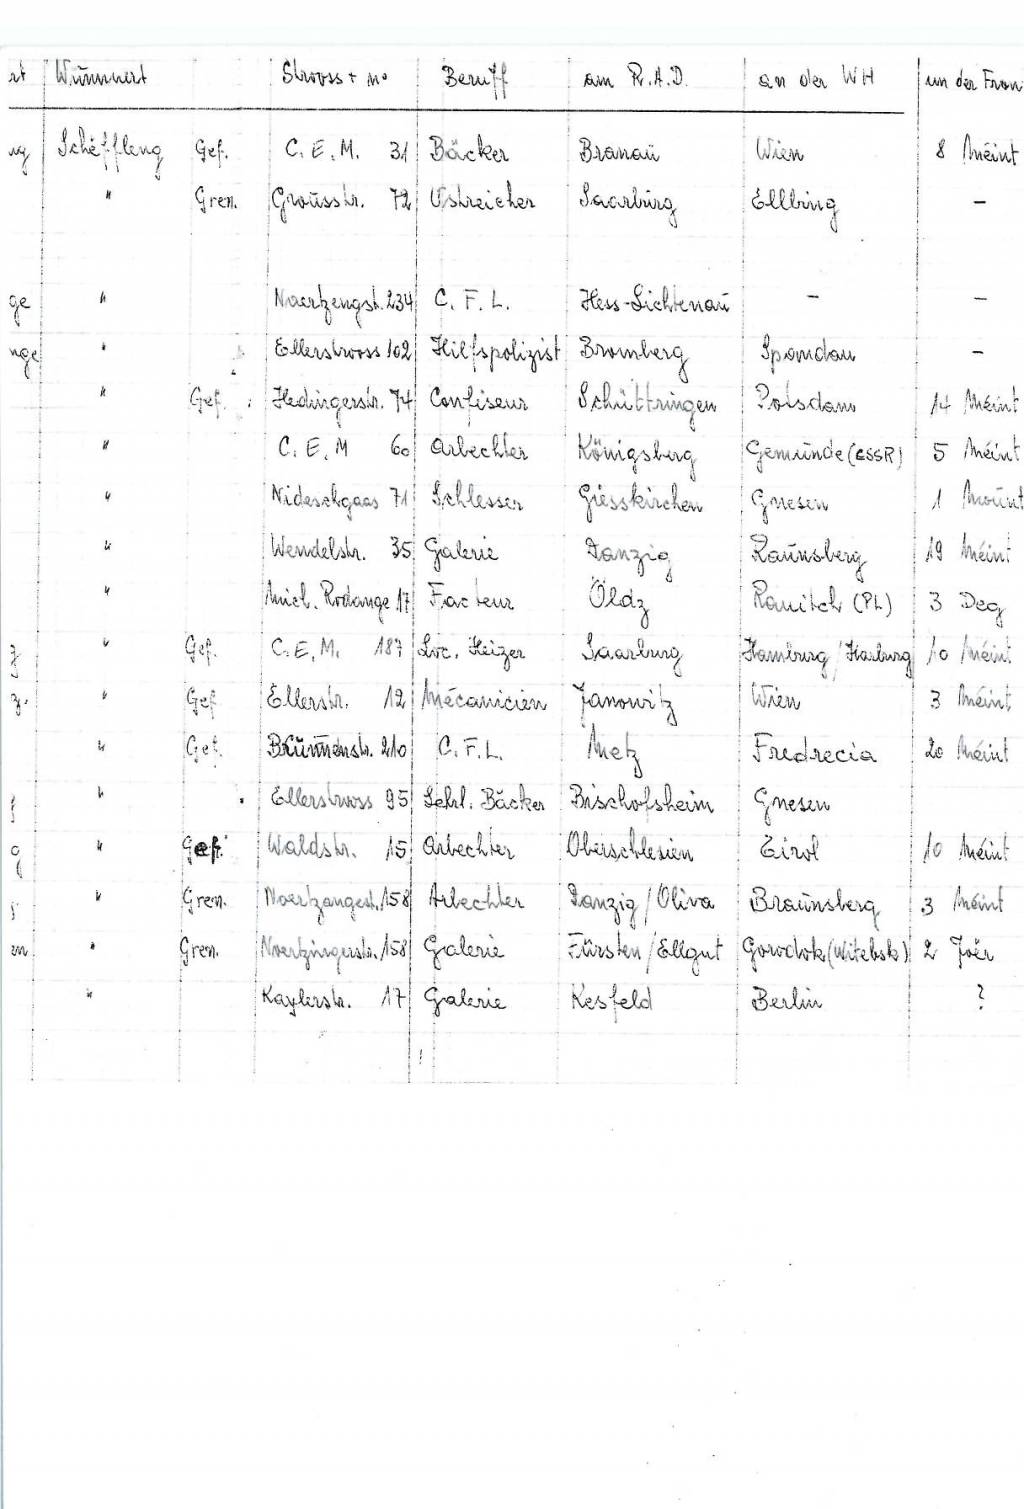 rt Wunnuert Strooss + no Beruff am R.A.D. an der WH un der Fron
ng Schëffleng Gef. C. E. M. 31 Bäcker Branau Wien 8 Méint
" Gren. Groússtr. 72 Ustreicher Saarburg Ellbing –
ge " Noertzengstr. 234 C. F. L. Hess-Lichtenau – –
nge " Ellerstrooss 102 Hilfspolizist Bromberg Spandau –
" Gef. Hedingerstr. 74 Confiseur Schüttringen Potsdam 14 Méint
" C. E. M 60 Arbechter Königsberg Gemünde (CSSR) 5 Méint
" Nideschgaas 71 Schlesser Giesskirchen Gnesen 1 Mount
" Wendelstr. 35 Galerie Danzig Raunsberg 19 Méint
" Mich. Rodange 17 Facteur Öldz Rawitch (PL) 3 Deg
z " Gef. C. E. M. 187 Loc. Heizer Saarburg Hamburg / Harburg 10 Méint
z. " Gef Ellerstr. 12 Mécanicien Janowitz Wien 3 Méint
" Gef. Brunnenstr. 210 C. F. L. Metz Fredrecia 20 Méint
" Ellerstrooss 95 Lehrl. Bäcker Bischofsheim Gnesen
" Gef. Waldstr. 15 Arbechter Oberschlesien Tirol 10 Méint
" Gren. Noertzangestr. 158 Arbechter Danzig / Oliva Braunsberg 3 Méint
en " Gren. Noertzingerstr. 158 Galerie Fürsten / Ellgut Gorodok (Witebsk) 2 Joër
" Kaylerstr. 17 Galerie Kesfeld Berlin ?